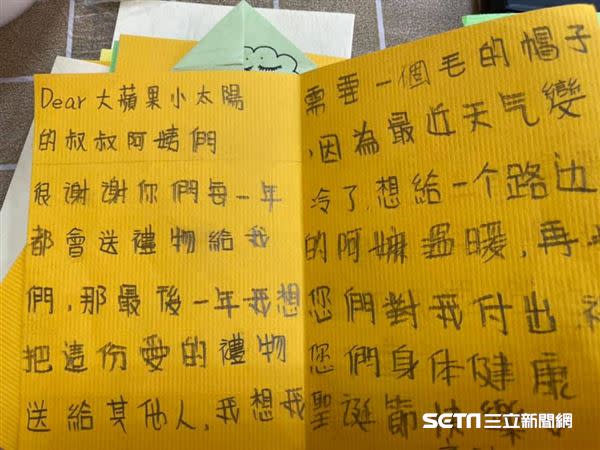 Dear 大蘋果小太陽
的叔叔阿姨們
很谢谢你們每一年
都會送禮物給我
們,那最後一年我想
把這份愛的禮物
送給其他人,我想我
需要一個毛的帽子
,因為最近天气變
冷了,想給一个路边
的阿嬤溫暖,再
您們對我付出,祝
您們身体健康
聖誕節快樂
SETN 三立新聞網